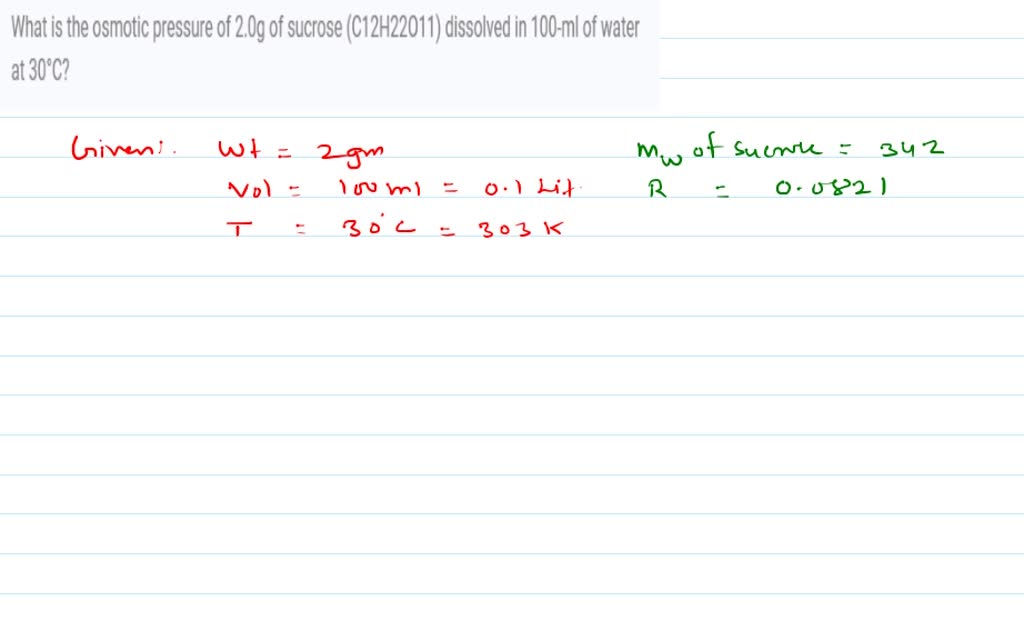 What is the osmotic pressure of 2.0g of sucrose (C12H22O11) dissolved in 100-ml of water
at 30°C?
Given:. Wt = 2gm Mw of sucrose = 342
Vol = 100 ml = 0.1 Lit. R = 0.0821
T = 30°C = 303 K